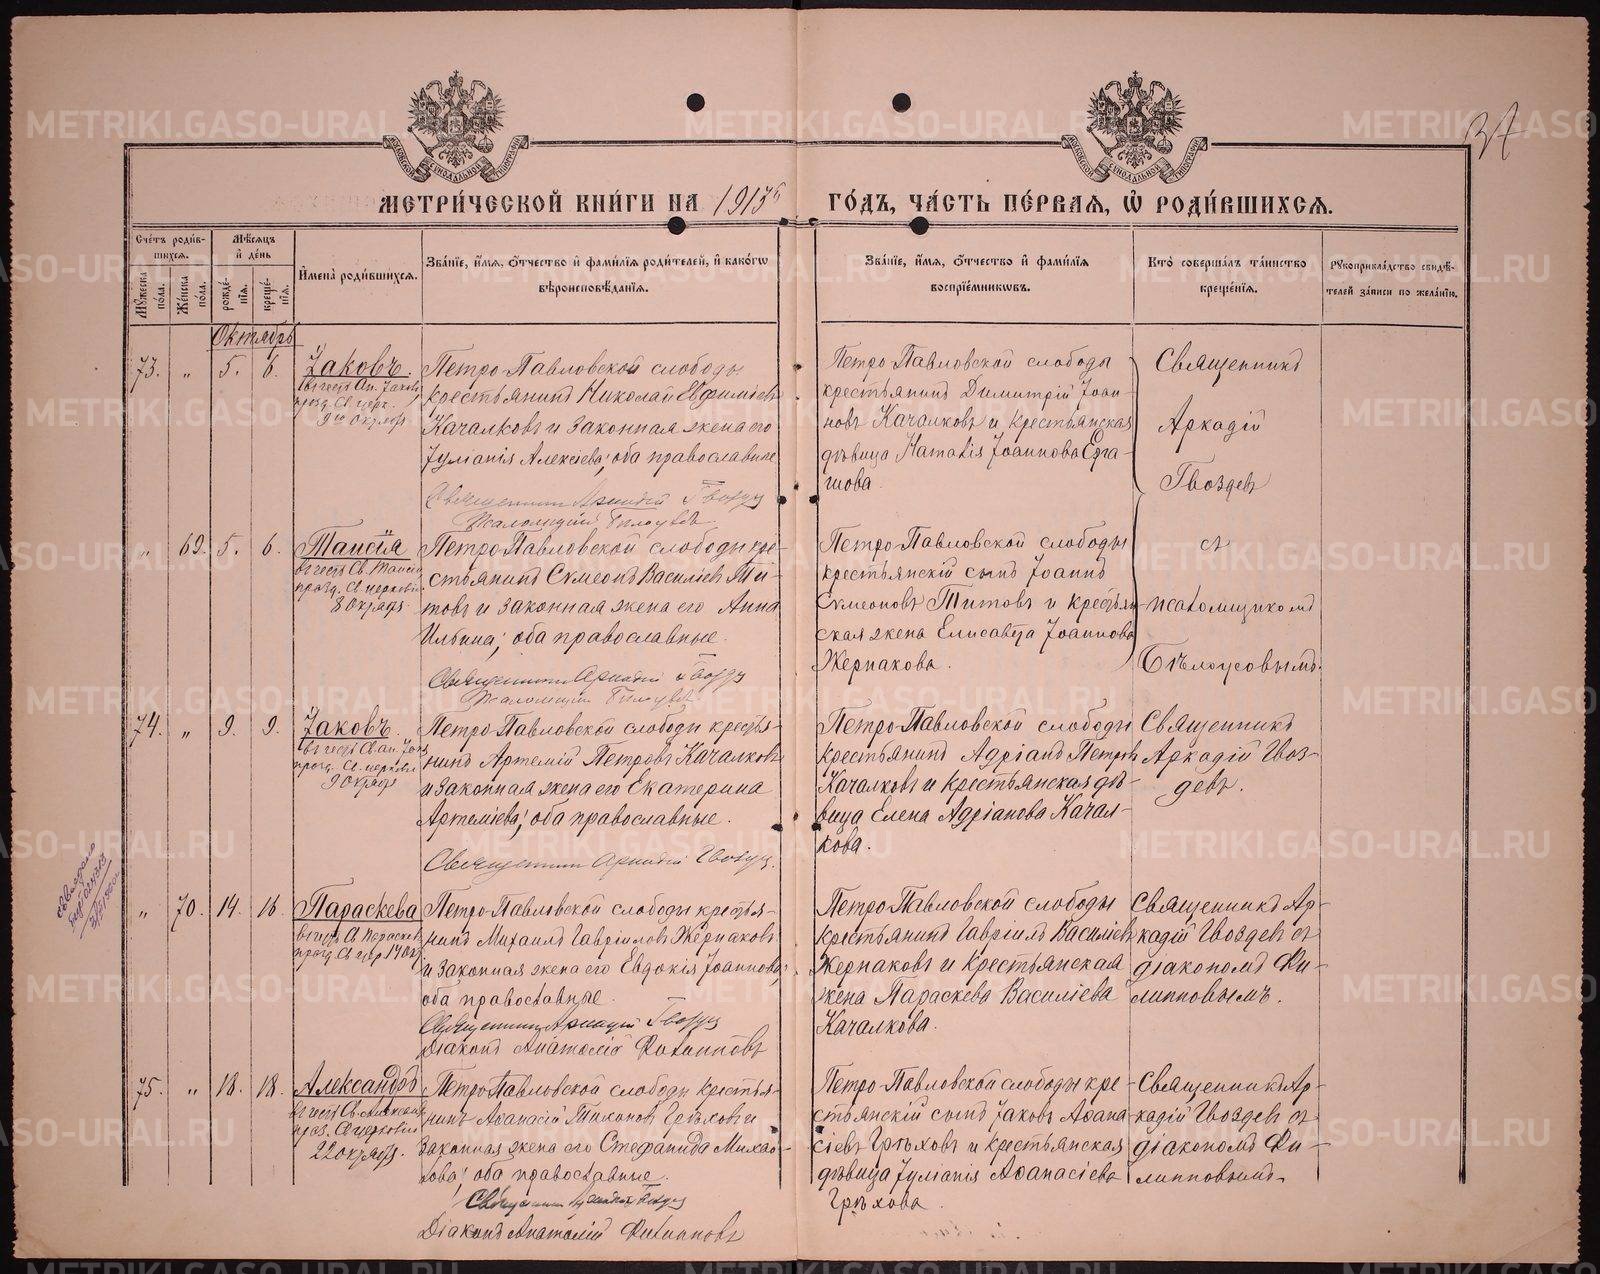 37
МЕТРИ́ЧЕСКОЙ КНИ́ГИ НА 1913й ГО́ДЪ, ЧА́СТЬ ПЕ́РВАЯ, Ѡ҆ РОДИ́ВШИХСЯ.
Сче́тъ роди́в-
шихся.
Мѣ́сяцъ
и҆ де́нь
Мꙋ́жеска
по́ла.
Же́нска
по́ла.
рожде́-
нїя.
креще́-
нїя.
И҆мена̀ роди́вшихся.
Зва́нїе, и҆́мя, ѻ҆́тчество и҆ фами́лїя роди́телей, и҆ како́гѡ
вѣроисповѣ́данїя.
Зва́нїе, и҆́мя, ѻ҆́тчество и҆ фами́лїя
воспрїе́мниковъ.
Кто̀ соверша́лъ та́инство
креще́нїя.
Рꙋкоприкла́дство свидѣ́-
телей за́писи по жела́нїю.
Октябрь
73. „ 5. 6.
Іаковъ.
въ честь Ап. Іакова
празд. Св. церк.
9го Октября
Петро-Павловской слободы
крестьянинъ Николай Евфиміевъ
Качалковъ и законная жена его
Іуліанія Алексіева; оба православные
Священникъ Аркадій Гвоздевъ
Псаломщикъ Бѣлоусовъ
Петро-Павловской слободы
крестьянинъ Димитрій Іоан-
новъ Качалковъ и крестьянская
дѣвица Наталія Іоаннова Ерга-
шова.
Священникъ
Аркадій
Гвоздевъ
съ
псаломщикомъ
Бѣлоусовымъ.
„ 69. 5. 6.
Таисія
въ честь Св. Таисіи
празд. Св. церковію
8 Октября
Петро-Павловской слободы кре-
стьянинъ Сѵмеонъ Василіевъ Ти-
товъ и законная жена его Анна
Ильина; оба православные.
Священникъ Аркадій Гвоздевъ
Псаломщикъ Бѣлоусовъ
Петро-Павловской слободы
крестьянскій сынъ Іоаннъ
Сѵмеоновъ Титовъ и крестьян-
ская жена Елисавета Іоаннова
Жернакова.
74. „ 9. 9.
Іаковъ.
въ честь Св. ап. Іакова
празд. Св. церковію
9 Октября
Петро-Павловской слободы крестья-
нинъ Артемій Петровъ Качалковъ
и законная жена его Екатерина
Артеміева; оба православные.
Священникъ Аркадій Гвоздевъ.
Петро-Павловской слободы
крестьянинъ Адріанъ Петровъ
Качалковъ и крестьянская дѣ-
вица Елена Адріанова Качал-
кова.
Священникъ
Аркадій Гвоз-
девъ.
„ 70. 14. 16.
Параскева
въ честь Св. Параскевы
празд. Св. цер. 14 Окт.
Петро-Павловской слободы крестья-
нинъ Михаилъ Гавріиловъ Жернаковъ
и законная жена его Евдокія Іоаннова;
оба православные.
Священникъ Аркадій Гвоздевъ
Діаконъ Анатолій Филипповъ
Петро-Павловской слободы
крестьянинъ Гавріилъ Василіевъ
Жернаковъ и крестьянская
жена Параскева Василіева
Качалкова.
Священникъ Ар-
кадій Гвоздевъ съ
діакономъ Фи-
липповымъ.
75. „ 18. 18.
Александръ
въ честь Св. Александра
праз. Св. церковію
22 октября.
Петро-Павловской слободы крестья-
нинъ Аѳанасій Тихоновъ Грѣховъ и
законная жена его Стефанида Михай-
лова; оба православные.
Священникъ Аркадій Гвоздевъ
Діаконъ Анатолій Филипповъ
Петро-Павловской слободы кре-
стьянскій сынъ Іаковъ Аѳана-
сіевъ Грѣховъ и крестьянская
дѣвица Іуліанія Аѳанасіева
Грѣхова.
Священникъ Ар-
кадій Гвоздевъ съ
діакономъ Фи-
липповымъ.
METRIKI.GASO-URAL.RU